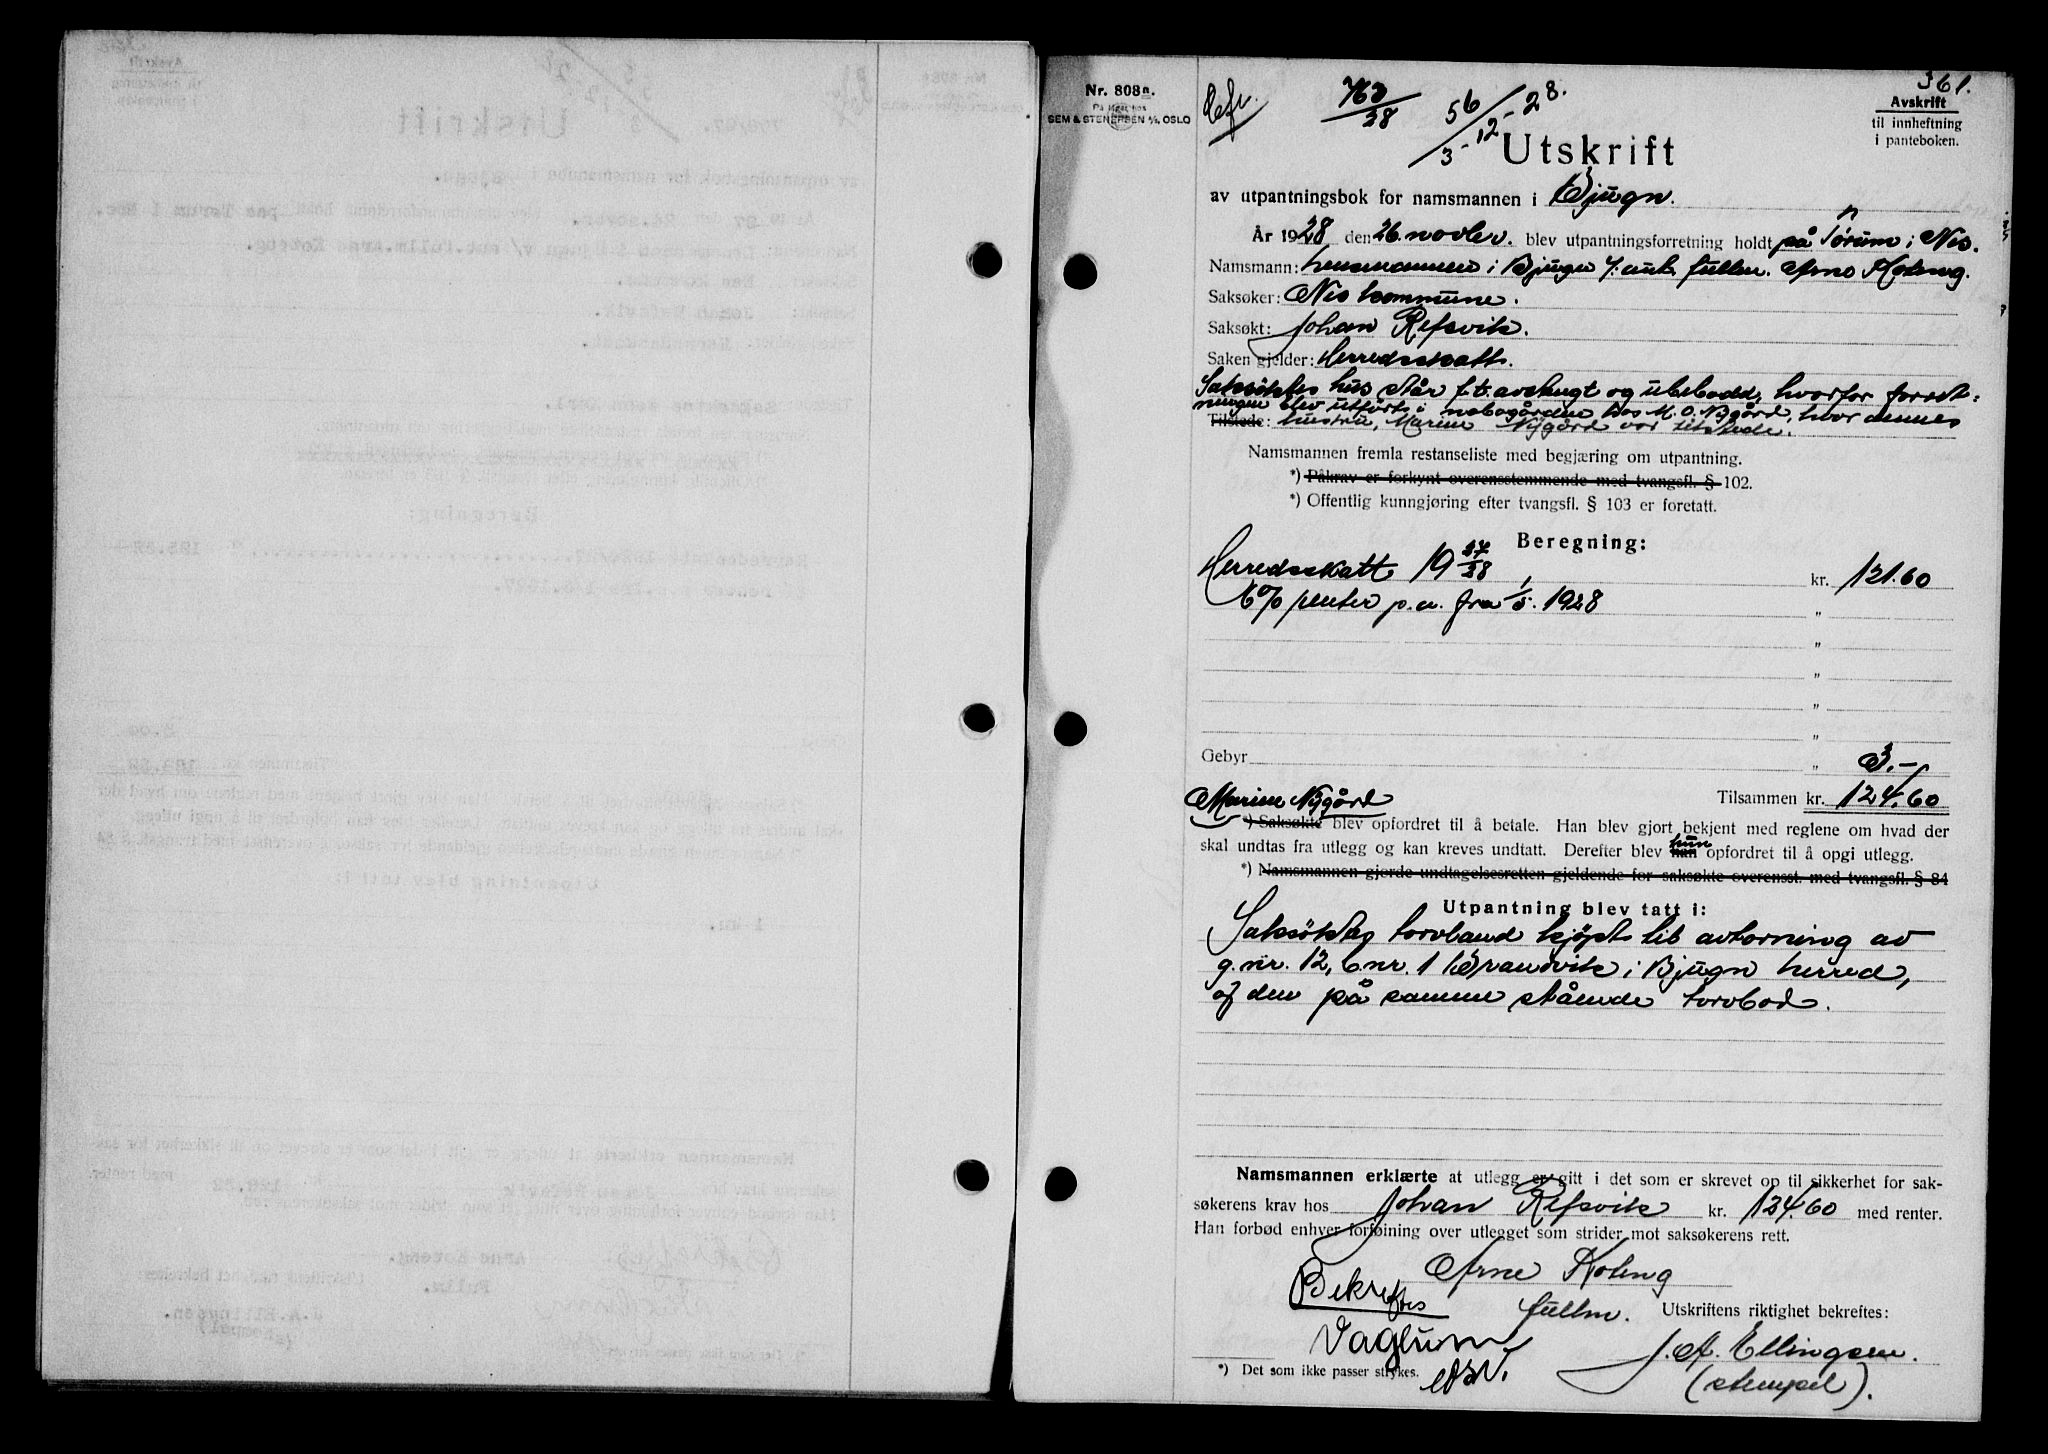 361.
Nr. 808a.
På lager hos
SEM & STENERSEN A/S, OSLO
763
28
56
3-12-28.
Avskrift
til innheftning
i panteboken.
Utskrift
av utpantningsbok for namsmannen i Bjugn.
År 1928 den 26. novbr. blev utpantningsforretning holdt på Tørum i Nes.
Namsmann: Lensmannen i Bjugn v. aut. fullm. Arne Koteng.
Saksøker: Nes kommune.
Saksøkt: Johan Refsvik.
Saken gjelder: Herredsskatt.
Saksøktes hus står f.t. avstengt og ubebodd, hvorfor forret-
ningen blev utført i nabogården hos M. O. Nygård, hvor dennes
Tilstede: hustru, Marine Nygård var tilstede.
Namsmannen fremla restanseliste med begjæring om utpantning.
*) Påkrav er forkynt overensstemmende med tvangsfl. § 102.
*) Offentlig kunngjøring efter tvangsfl. § 103 er foretatt.
Beregning:
Herredsskatt 1927/28 kr. 121.60
6% renter p.a. fra 1/5. 1928 "
"
"
"
"
Gebyr " 3.-
Tilsammen kr. 124.60
Marine Nygård
*) Saksøkte blev opfordret til å betale. Han blev gjort bekjent med reglene om hvad der
skal undtas fra utlegg og kan kreves undtatt. Derefter blev han hun opfordret til å opgi utlegg.
*) Namsmannen gjorde undtagelsesretten gjeldende for saksøkte overensst. med tvangsfl. § 84
Utpantning blev tatt i:
Saksøktes torvland kjøpt til avtorvning av
g.nr. 12, b.nr. 1 Brandvik i Bjugn herred,
og den på samme stående torvbod.
Namsmannen erklærte at utlegg er gitt i det som er skrevet op til sikkerhet for sak-
søkerens krav hos Johan Refsvik kr. 124.60 med renter.
Han forbød enhver forføining over utlegget som strider mot saksøkerens rett.
Arne Koteng
fullm.
Bekreftes
Vaglum
Utskriftens riktighet bekreftes:
J. A. Ellingsen.
(stempel).
*) Det som ikke passer strykes.